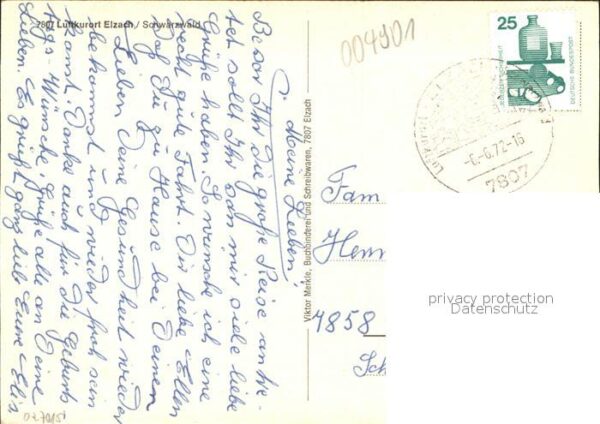 7807 Luftkurort Elzach / Schwarzwald
004901
Meine Lieben!
Bevor Ihr die große Reise antre-
tet sollt Ihr von mir viele liebe
Grüße haben. So wünsche ich eine
recht gute Fahrt. Dir liebe Ellen
daß Du zu Hause bei Deinen
Lieben Deine Gesundheit wieder
bekommst und wieder froh sein
kannst. Danke auch für die Geburts
tags-Wünsche. Grüße alle an Deine
Lieben. Es grüßt ganz lieb Eure Elis
Viktor Merkle, Buchbinderei und Schreibwaren, 7807 Elzach
25
DEUTSCHE BUNDESPOST
-6.-6.72-16
7807
Fam
Henn
7858
Sch
privacy protection
Datenschutz